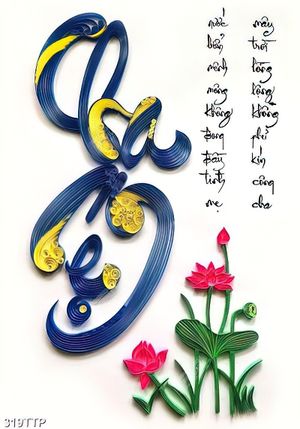 Cha
Mẹ
nước biển mênh mông không đong đầy tình mẹ
mây trời lồng lộng không phủ kín công cha
319TTP